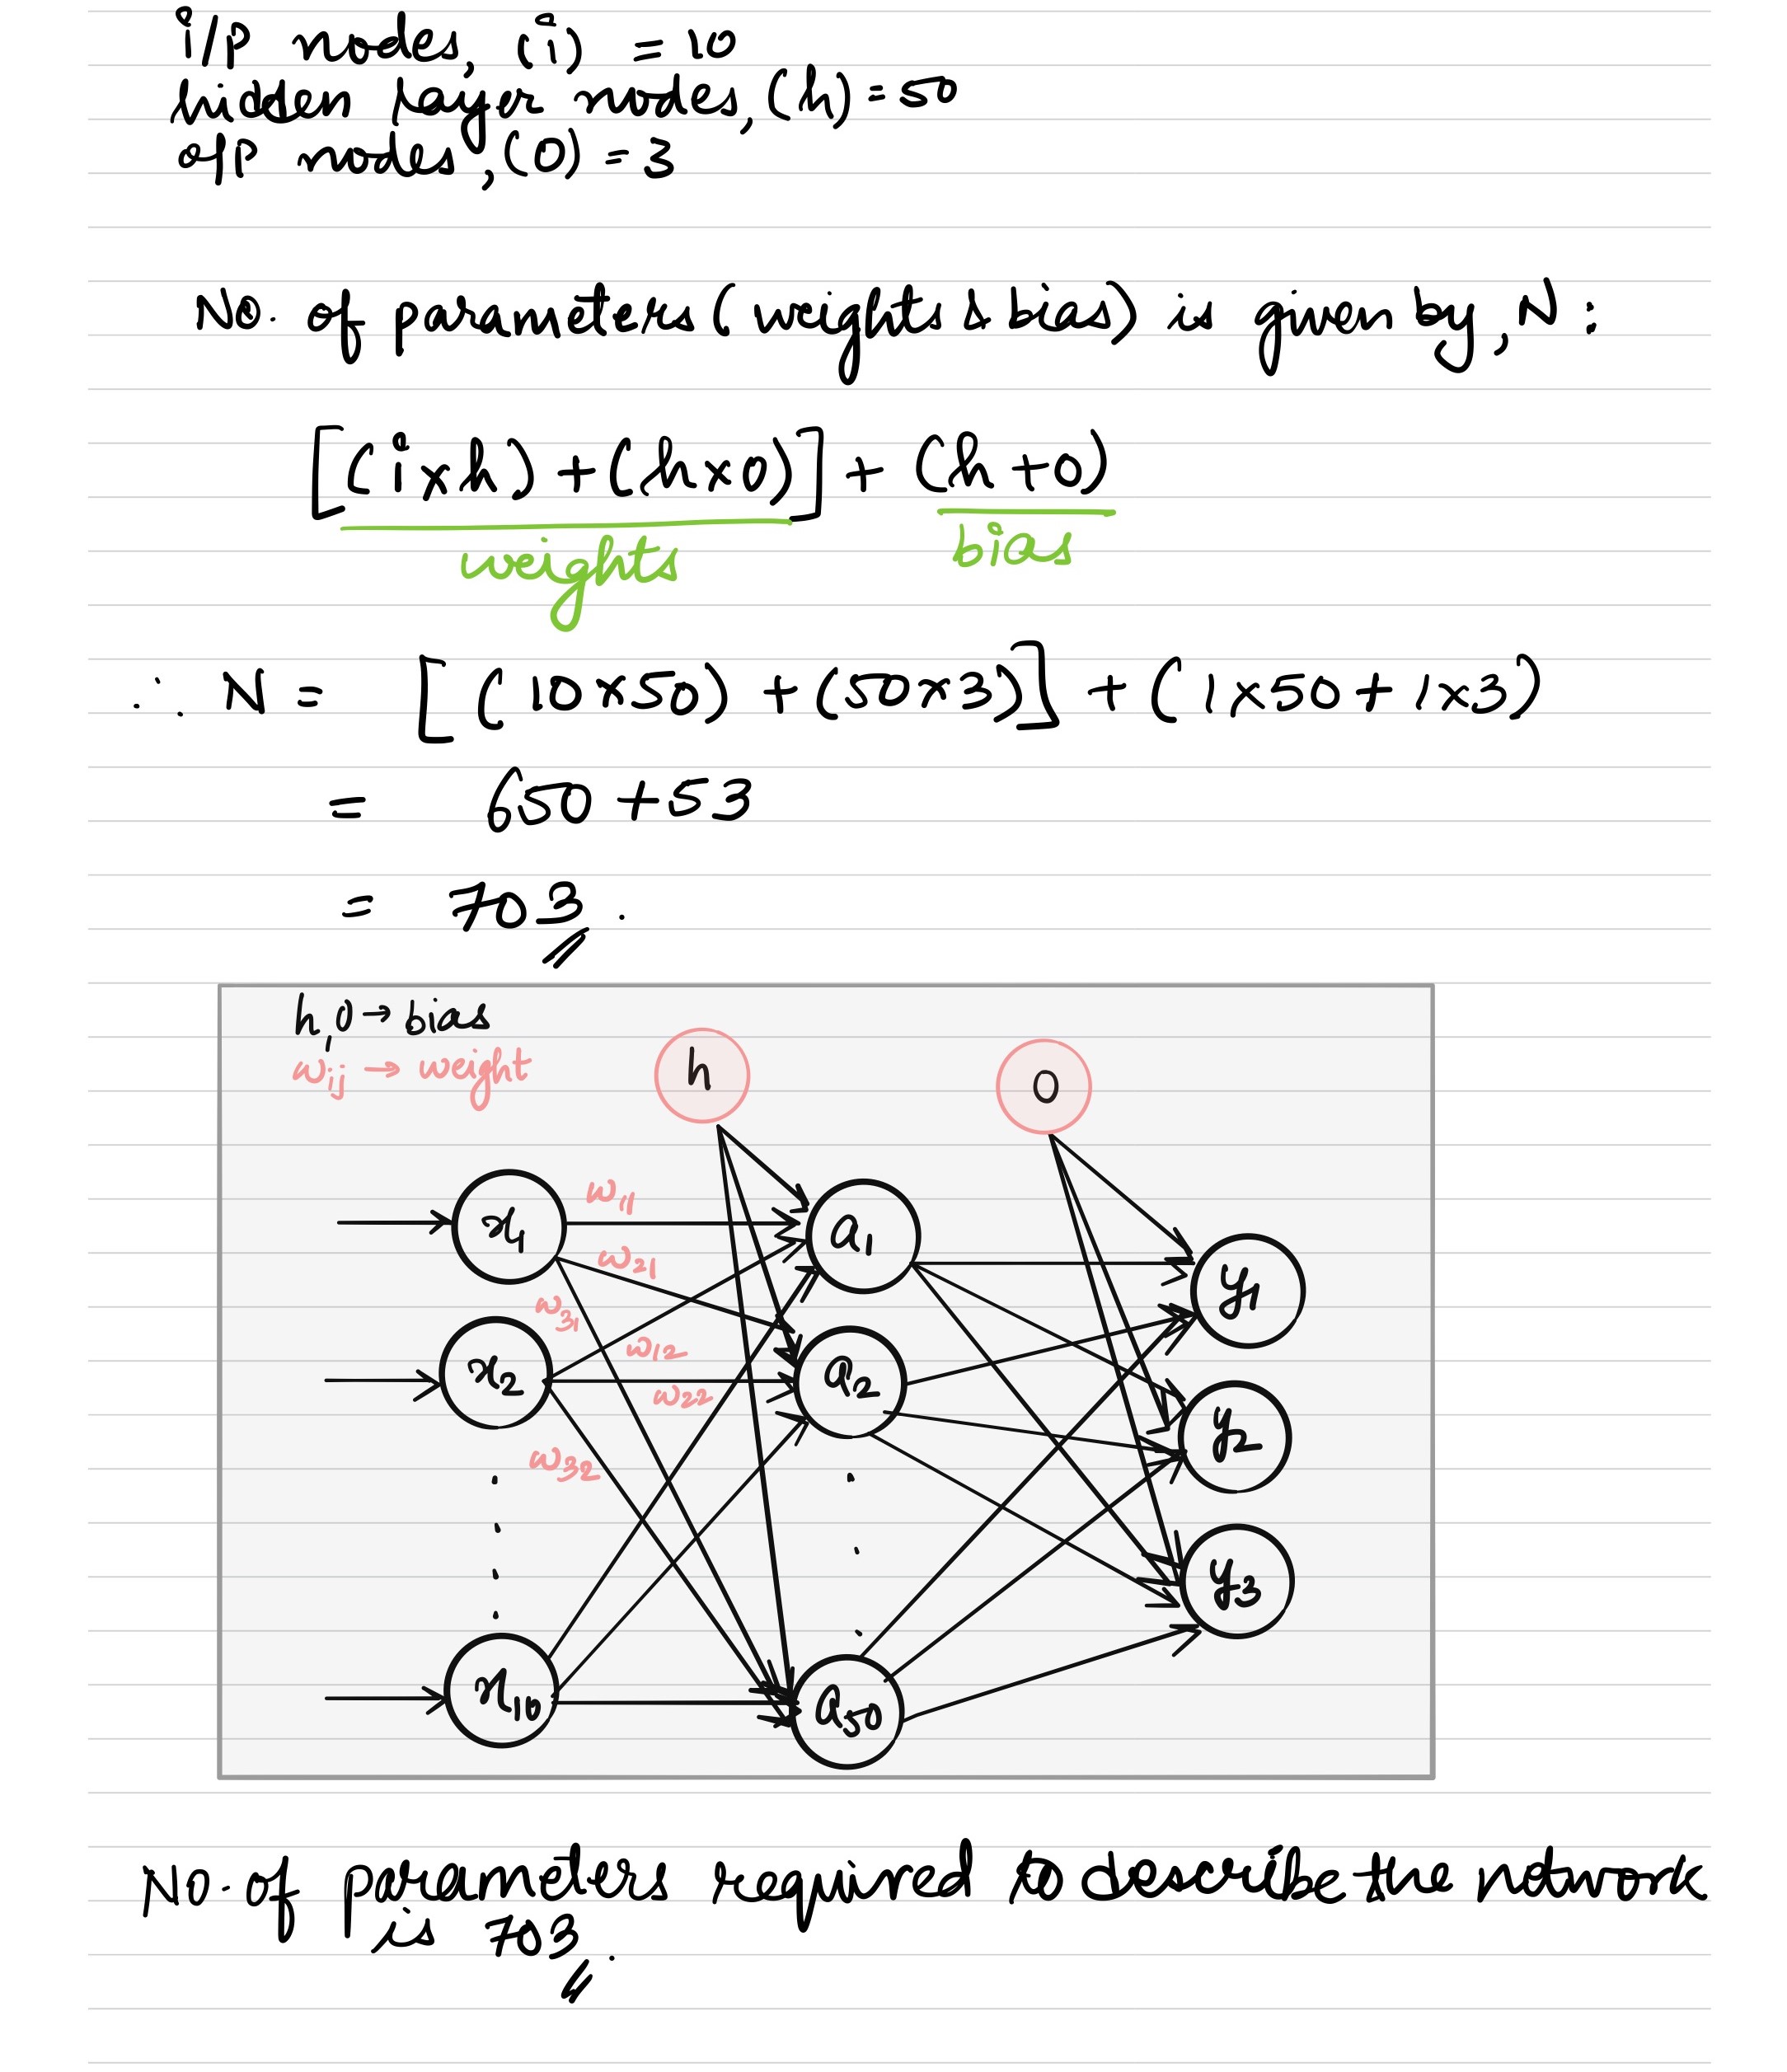 i/p nodes, (i) = 10
hidden layer nodes, (h) = 50
o/p nodes, (o) = 3
No. of parameters ( weights & bias) is given by, N :
[( i x h ) + ( h x o )] + ( h + o )
weights
bias
∴ N = [ ( 10 x 50 ) + ( 50 x 3 )] + ( 1 x 50 + 1 x 3 )
= 650 + 53
= 703 .
h, o → bias
w_ij → weight
h
o
x_1
w_11
a_1
w_21
y_1
w_31
x_2
w_12
a_2
w_22
y_2
w_32
y_3
x_10
a_50
No. of parameters required to describe the network
is 703 .